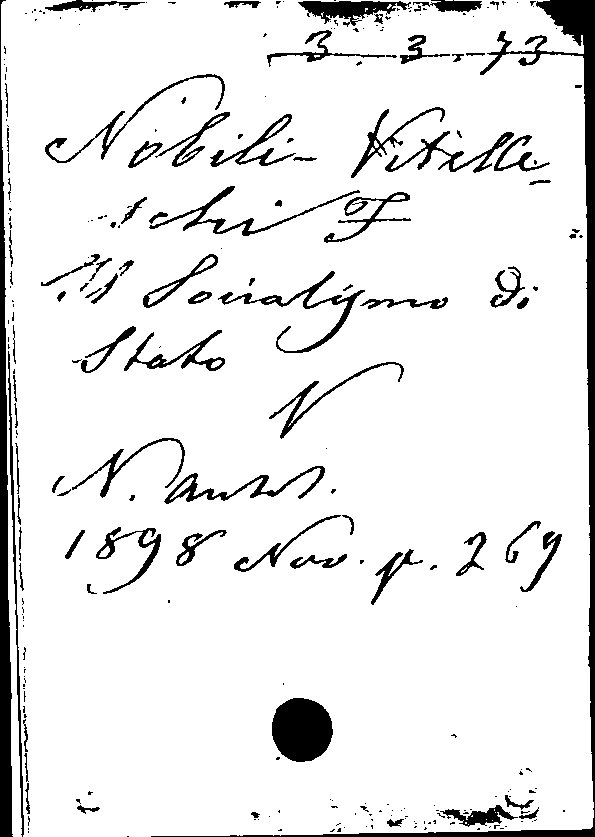 3. 3. 73
Nobili-Vitelle-
schi F
Il Socialismo di
Stato
N
N. Antol.
1898 Nov. p. 269